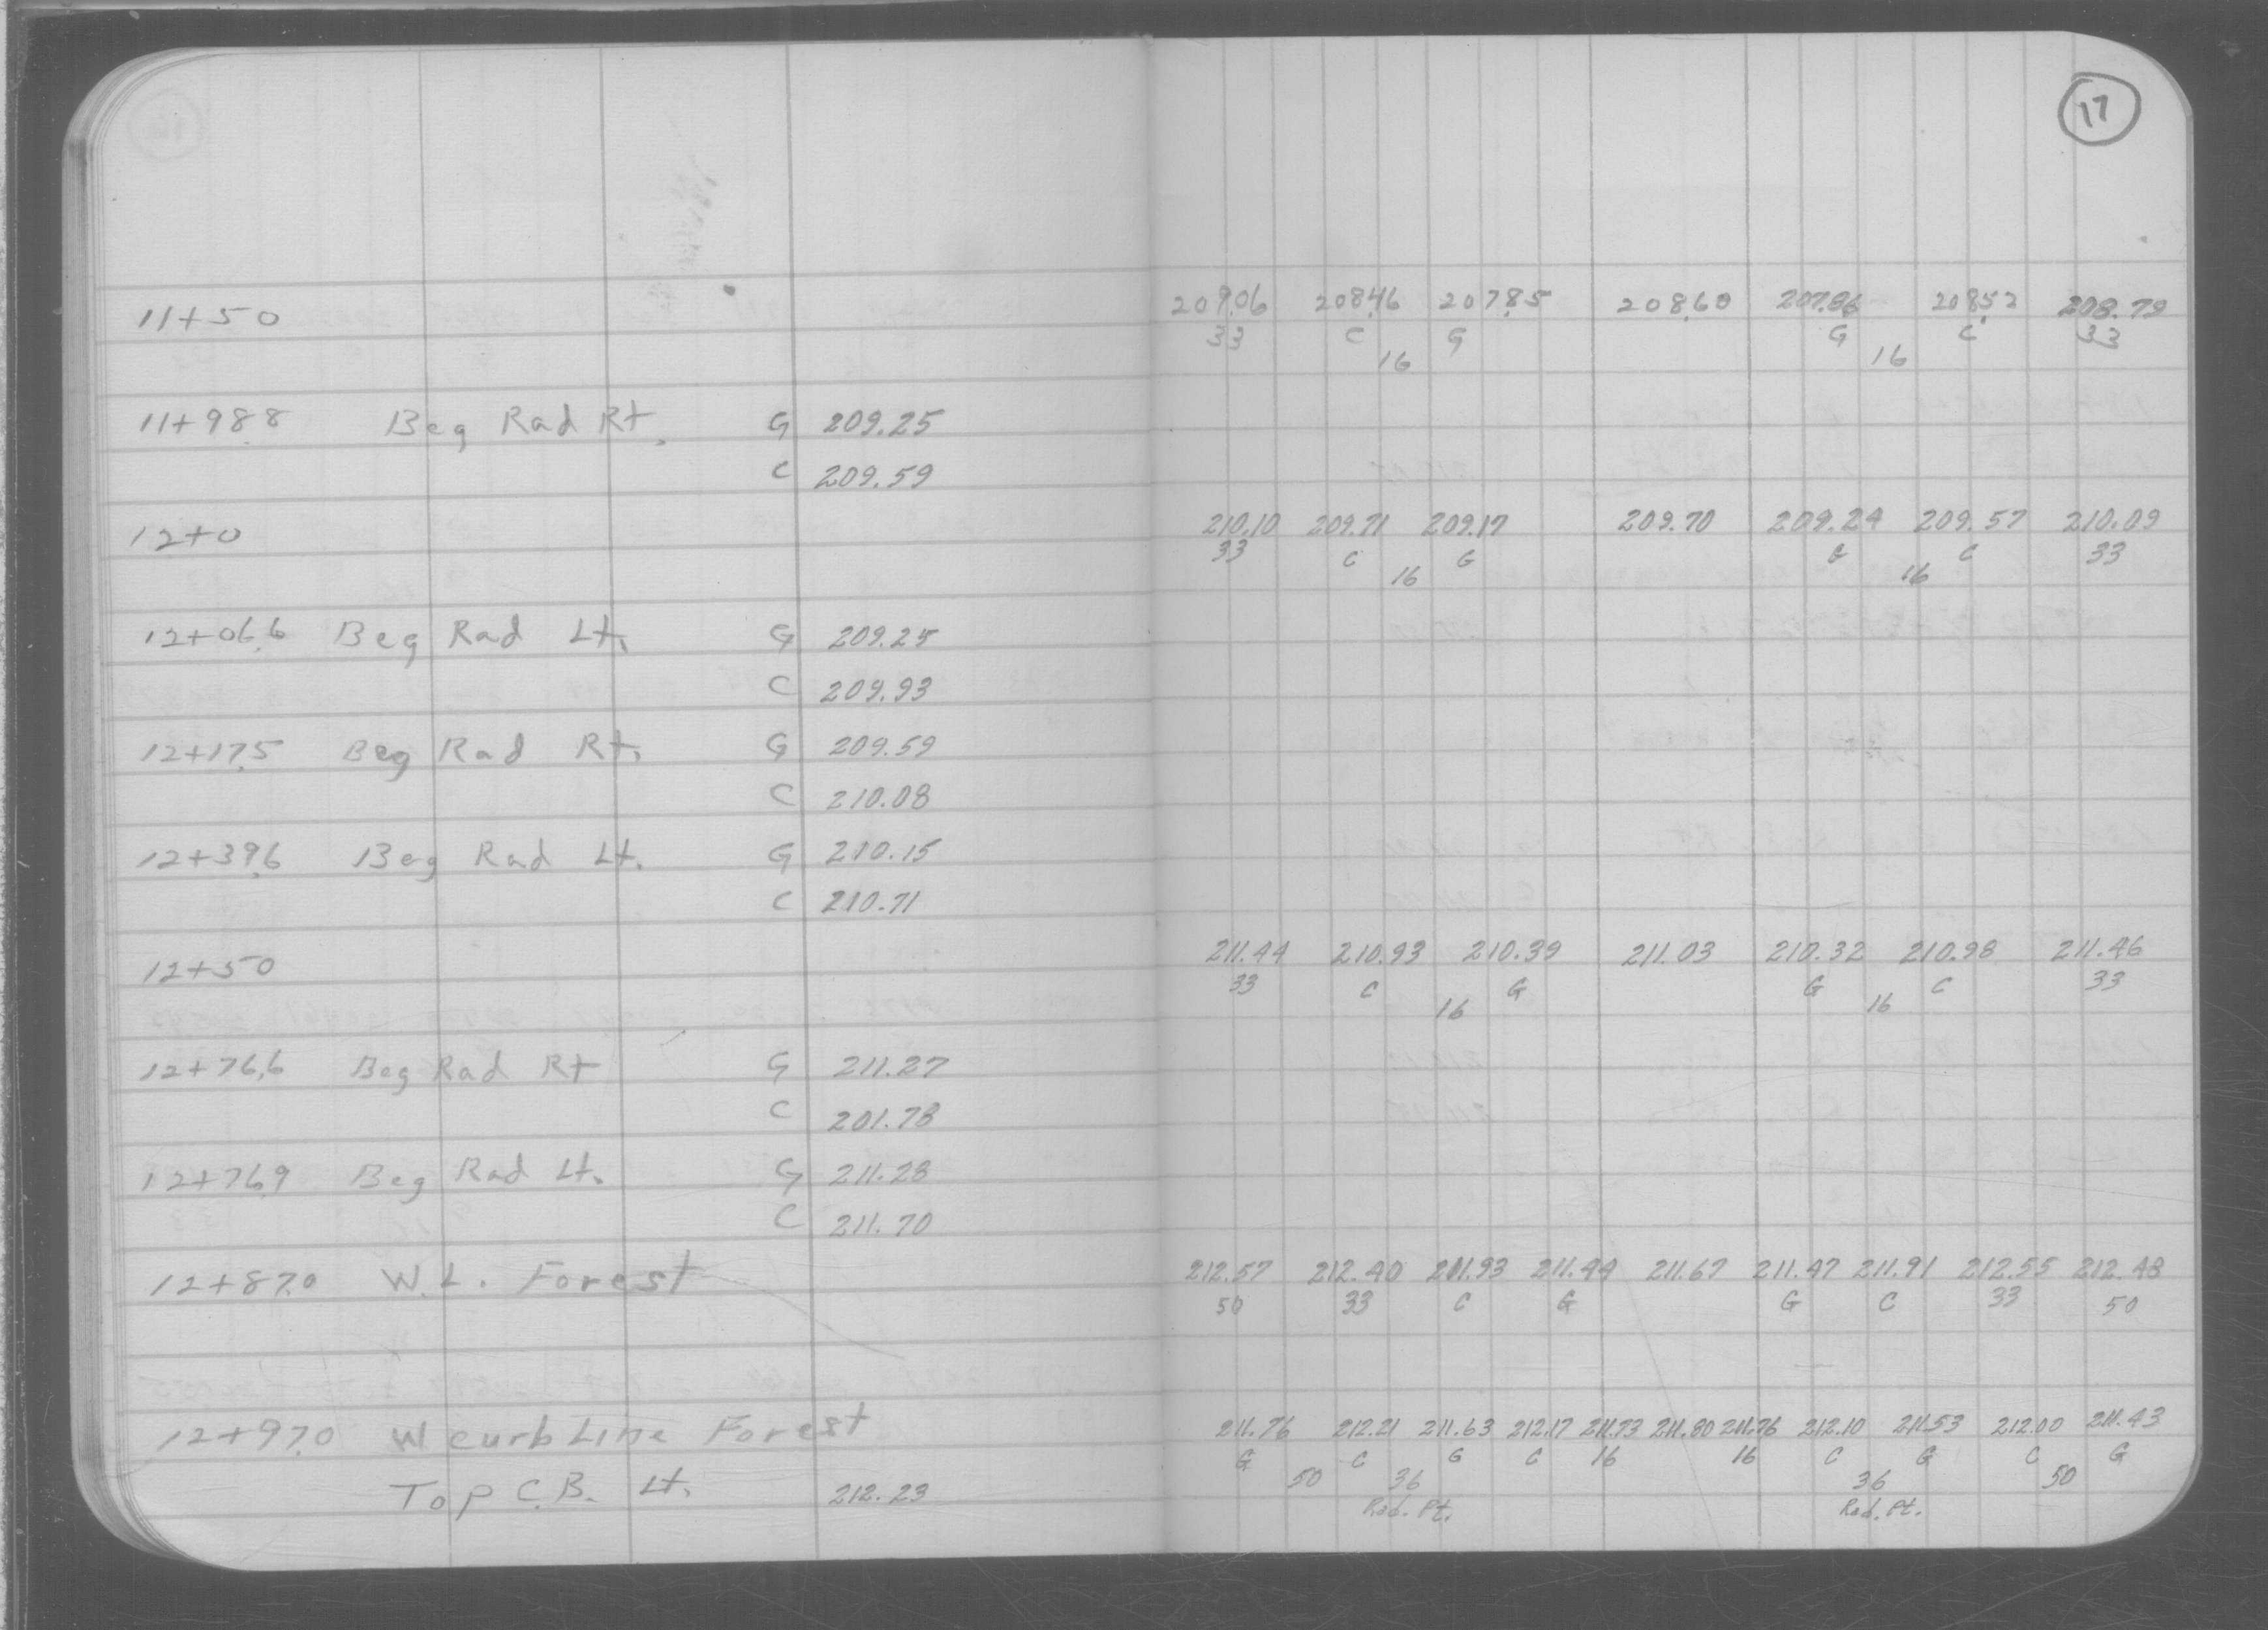 17
11+50 209.06 208.46 207.85 208.60 207.86 208.52 208.79
33 C G G C 33
16 16
11+98.8 Beg Rad Rt. G 209.25
C 209.59
12+0 210.10 209.71 209.17 209.70 209.24 209.57 210.09
33 C G G C 33
16 16
12+06.6 Beg Rad Lt. G 209.25
C 209.93
12+17.5 Beg Rad Rt. G 209.59
C 210.08
12+39.6 Beg Rad Lt. G 210.15
C 210.71
12+50 211.44 210.93 210.39 211.03 210.32 210.98 211.46
33 C G G C 33
16 16
12+76.6 Beg Rad Rt G 211.27
C 201.78
12+76.9 Beg Rad Lt. G 211.28
C 211.70
12+87.0 W.L. Forest 212.57 212.40 211.93 211.44 211.67 211.47 211.91 212.55 212.48
50 33 C G G C 33 50
12+97.0 W curb Line Forest 211.76 212.21 211.63 212.17 211.73 211.80 211.76 212.10 211.53 212.00 211.43
G C G C 16 16 C G C G
50 36 36 50
Top C.B. Lt. 212.23
Rad. Pt. Rad. Pt.